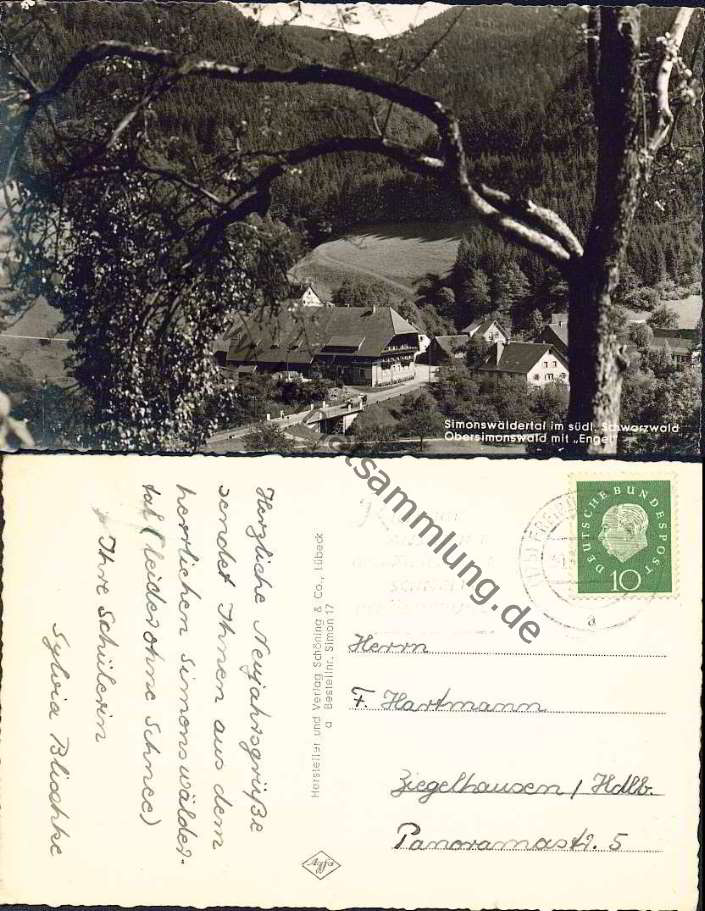 Simonswäldertal im südl. Schwarzwald
Obersimonswald mit „Engel"
Herzliche Neujahrsgrüße
sendet Ihnen aus dem
herrlichen Simonswälder-
tal (leider ohne Schnee)
Ihre Schülerin
Sylvia Blischke
Hersteller und Verlag Schöning & Co., Lübeck
a Bestellnr. Simon 17
Agfa
DEUTSCHE BUNDESPOST
10
a
Herrn
Hartmann
Ziegelhausen / Hdlb.
Panoramastr. 5
tsammlung.de